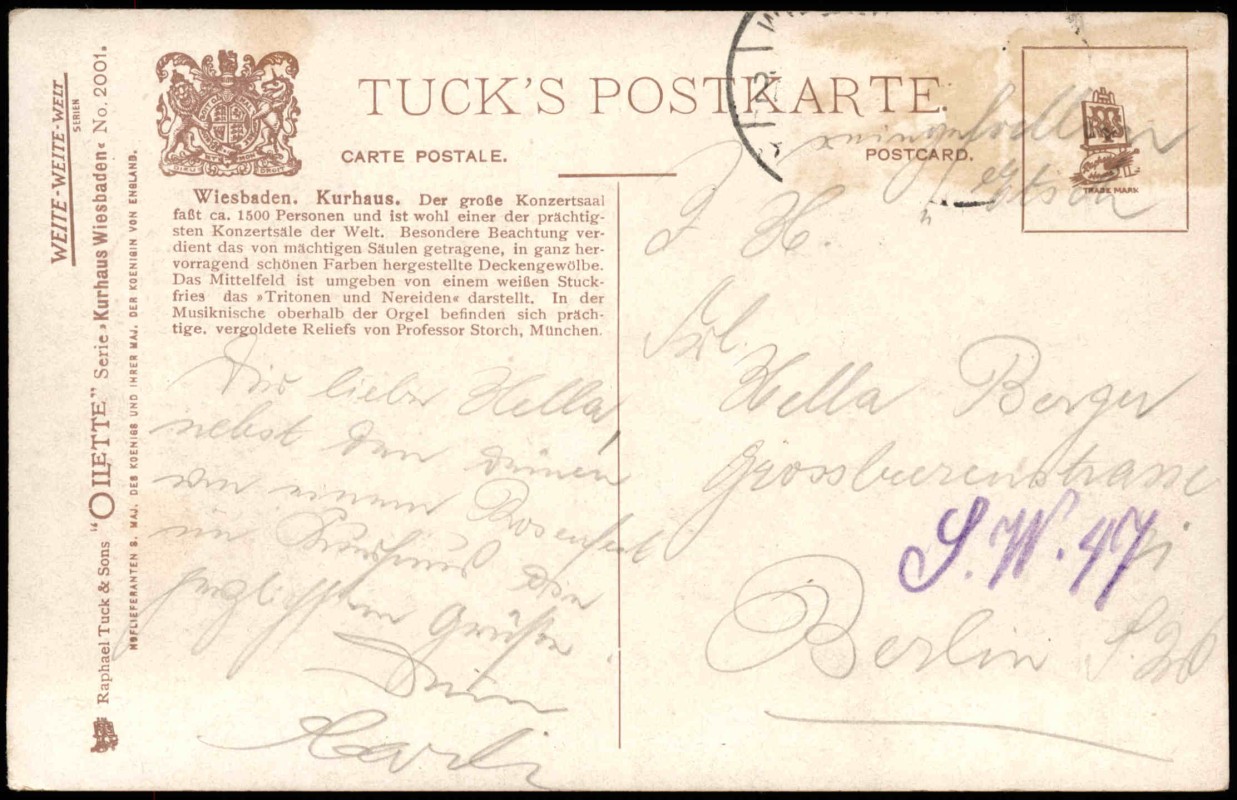 WEITE-WEITE-WELT
SERIEN
Raphael Tuck & Sons "OILETTE" Serie »Kurhaus Wiesbaden« No. 2001.
HOFLIEFERANTEN S. MAJ. DES KOENIGS UND IHRER MAJ. DER KOENIGIN VON ENGLAND.
TUCK'S POSTKARTE.
CARTE POSTALE.
POSTCARD.
TRADE MARK
Wiesbaden. Kurhaus. Der große Konzertsaal
faßt ca. 1500 Personen und ist wohl einer der prächtig-
sten Konzertsäle der Welt. Besondere Beachtung ver-
dient das von mächtigen Säulen getragene, in ganz her-
vorragend schönen Farben hergestellte Deckengewölbe.
Das Mittelfeld ist umgeben von einem weißen Stuck-
fries das »Tritonen und Nereiden« darstellt. In der
Musiknische oberhalb der Orgel befinden sich präch-
tige, vergoldete Reliefs von Professor Storch, München.
Dir liebe Hella,
nebst den deinen
von einem Rosenfest
im Kurhaus die
herzlichsten Grüße.
Dein
Karli
Frl.
Hella Berger
Grossbeerenstrasse
S.W. 47
Berlin